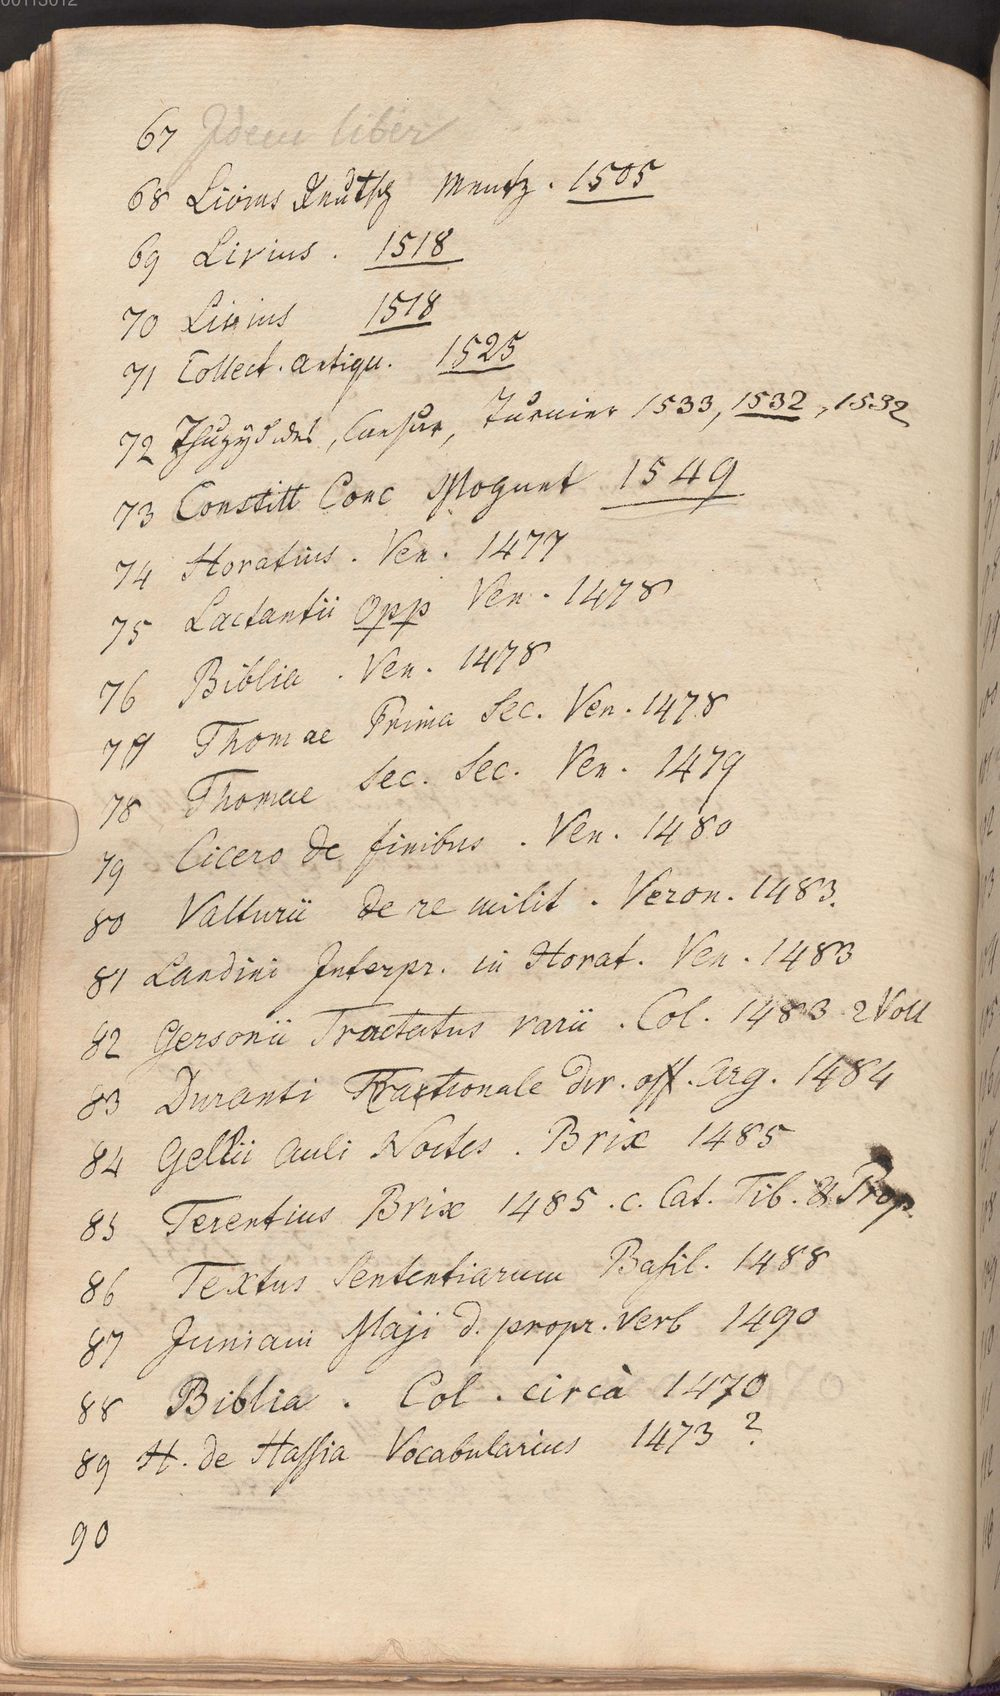 00113012
67 Idem liber
68 Livius Deutsch Mentz . 1505
69 Livius . 1518
70 Livius 1518
71 Collect . antiqu . 1525
72 Thuzydides , Caesar , Turnier 1533 , 1532 , 1532
73 Constitt Conc Mogunt 1549
74 Horatius . Ven . 1477
75 Lactantii Opp Ven . 1478
76 Biblia . Ven . 1478
77 Thomae Prima Sec . Ven . 1478
78 Thomae Sec . Sec . Ven . 1479
79 Cicero de finibus . Ven . 1480
80 Valturii de re milit . Veron . 1483 .
81 Landini Interpr . in Horat . Ven . 1483
82 Gersonii Tractatus varii . Col . 1483 2 Voll
83 Duranti Rationale div . off . Arg . 1484
84 Gellii Auli Noctes . Brix 1485
85 Terentius Brix 1485 . c . Cat . Tib . & Prop .
86 Textus Sententiarum Basil . 1488
87 Juniani Maji d . propr . Verb 1490
88 Biblia . Col . circà 1470
89 H . de Hassia Vocabularius 1473 ?
90